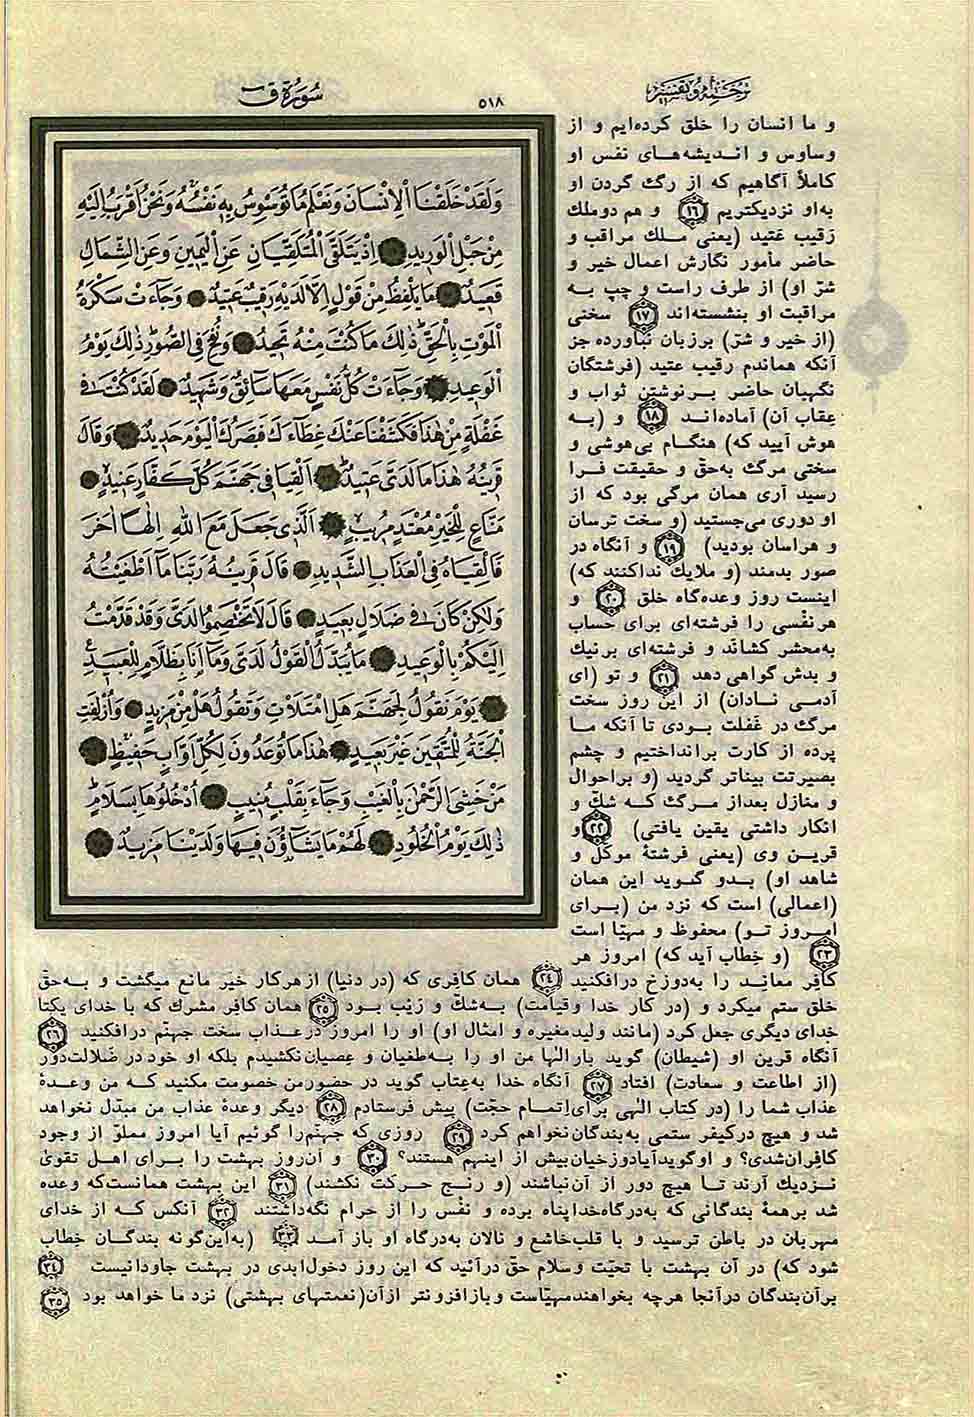 ترجمه و تفسیر
٥١٨
سورة ق
وَلَقَدْ خَلَقْنَا الْاِنْسَانَ وَنَعْلَمُ مَا تُوَسْوِسُ بِهٖ نَفْسُهُ وَنَحْنُ اَقْرَبُ اِلَيْهِ
مِنْ حَبْلِ الْوَرِيدِ اِذْ يَتَلَقَّى الْمُتَلَقِّيَانِ عَنِ الْيَمِينِ وَعَنِ الشِّمَالِ
قَعِيدٌ مَا يَلْفِظُ مِنْ قَوْلٍ اِلَّا لَدَيْهِ رَقِيبٌ عَتِيدٌ وَجَاءَتْ سَكْرَةُ
الْمَوْتِ بِالْحَقِّ ذٰلِكَ مَا كُنْتَ مِنْهُ تَحِيدُ وَنُفِخَ فِى الصُّورِ ذٰلِكَ يَوْمُ
الْوَعِيدِ وَجَاءَتْ كُلُّ نَفْسٍ مَعَهَا سَائِقٌ وَشَهِيدٌ لَقَدْ كُنْتَ فى
غَفْلَةٍ مِنْ هٰذَا فَكَشَفْنَا عَنْكَ غِطَاءَكَ فَبَصَرُكَ الْيَوْمَ حَدِيدٌ وَقَالَ
قَرِينُهُ هٰذَا مَا لَدَىَّ عَتِيدٌ اَلْقِيَا فِى جَهَنَّمَ كُلَّ كَفَّارٍ عَنِيدٍ
مَنَّاعٍ لِلْخَيْرِ مُعْتَدٍ مُرِيبٍ اَلَّذِى جَعَلَ مَعَ اللهِ اِلٰهًا اٰخَرَ
فَاَلْقِيَاهُ فِى الْعَذَابِ الشَّدِيدِ قَالَ قَرِينُهُ رَبَّنَا مَا اَطْغَيْتُهُ
وَلٰكِنْ كَانَ فى ضَلَالٍ بَعِيدٍ قَالَ لَا تَخْتَصِمُوا لَدَىَّ وَقَدْ قَدَّمْتُ
اِلَيْكُمْ بِالْوَعِيدِ مَا يُبَدَّلُ الْقَوْلُ لَدَىَّ وَمَا اَنَا بِظَلَّامٍ لِلْعَبِيدِ
يَوْمَ نَقُولُ لِجَهَنَّمَ هَلِ امْتَلَاْتِ وَتَقُولُ هَلْ مِنْ مَزِيدٍ وَاُزْلِفَتِ
الْجَنَّةُ لِلْمُتَّقِينَ غَيْرَ بَعِيدٍ هٰذَا مَا تُوعَدُونَ لِكُلِّ اَوَّابٍ حَفِيظٍ
مَنْ خَشِىَ الرَّحْمٰنَ بِالْغَيْبِ وَجَاءَ بِقَلْبٍ مُنِيبٍ اُدْخُلُوهَا بِسَلَامٍ
ذٰلِكَ يَوْمُ الْخُلُودِ لَهُمْ مَا يَشَاؤُنَ فِيهَا وَلَدَيْنَا مَزِيدٌ
و ما انسان را خلق کرده‌ایم و از
وساوس و اندیشه‌های نفس او
کاملاً آگاهیم که از رگ گردن او
به‌او نزدیکتریم ١٦ و هم دو ملك
رَقیب عَتید (یعنی ملك مراقب و
حاضر مأمور نگارش اعمال خیر و
شرّ او) از طرف راست و چپ به
مراقبت او بنشسته‌اند ١٧ سخنی
(از خیر و شرّ) برزبان نیاورده جز
آنکه هماندم رقیب عتید (فرشتگان
نگهبان حاضر برنوشتن ثواب و
عِقاب آن) آماده‌اند ١٨ و (به
هوش آیید که) هنگام بی‌هوشی و
سختی مرگ به‌حقّ و حقیقت فرا
رسید آری همان مرگی بود که از
او دوری می‌جستید (و سخت ترسان
و هراسان بودید) ١٩ و آنگاه در
صور بدمند (و ملایك نداکنند که)
اینست روز وعده‌گاه خلق ٢٠ و
هرنفْسی را فرشته‌ای برای حساب
به‌محشر کشانَد و فرشته‌ای برنیك
و بدش گواهی دهد ٢١ و تو (ای
آدمی نادان) از این روز سخت
مرگ در غفلت بودی تا آنکه ما
پرده از کارت برانداختیم و چشم
بصیرتت بیناتر گردید (و براحوال
و منازل بعداز مرگ که شكّ و
انکار داشتی یقین یافتی) ٢٢ و
قرین وی (یعنی فرشتهٔ موکّل و
شاهد او) بدو گوید این همان
(اعمالی) است که نزد من (برای
امروز تو) محفوظ و مهیّا است
٢٣ (و خِطاب آید که) امروز هر
کافِر معانِد را به‌دوزخ درافکنید ٢٤ همان کافِری که (در دنیا) از هرکار خیر مانع میگشت و به‌حقّ
خلق ستم میکرد و (در کار خدا و قیامت) به‌شكّ و رَیْب بود ٢٥ همان کافر مشرك که با خدای یکتا
خدای دیگری جعل کرد (مانند ولیدمغیره و امثال او) او را امروز درعذاب سخت جهنّم درافکنید ٢٦
آنگاه قرین او (شیطان) گوید بارالٰها من او را به‌طغیان و عِصیان‌نکشیدم بلکه او خود در ضَلالت‌دور
(از اطاعت و سعادت) افتاد ٢٧ آنگاه خدا به‌عِتاب گوید در حضورمن خصومت مکنید که من وعدهٔ
عذاب شما را (در کِتاب الٰهی برای‌اِتمام حجّت) پیش فرستادم ٢٨ دیگر وعدهٔ عذاب من مبدّل نخواهد
شد و هیچ درکیفر ستمی به‌بندگان‌نخواهم کرد ٢٩ روزی که جهنّم‌را گوئیم آیا امروز مملوّ از وجود
کافِران‌شدی؟ و اوگوید آیا دوزخیان‌بیش از اینهم هستند؟ ٣٠ و آن‌روز بهشت را برای اهل تقویٰ
نزدیك آرند تا هیچ دور از آن‌نباشند (و رنج حرکت نکشند) ٣١ این بهشت همانست‌که وعده
شد برهمهٔ بندگانی که به‌درگاه‌خداپناه برده و نفْس را از حرام نگه‌داشتند ٣٢ آنکس که از خدای
مهربان در باطن ترسید و با قلب‌خاشع و نالان به‌درگاه او باز آمد ٣٣ (به‌این‌گونه بندگان خِطاب
شود که) در آن بهشت با تحیّت وسلام حقّ درآئید که این روز دخول‌ابدی در بهشت جاودانیست ٣٤
برآن‌بندگان درآنجا هرچه بخواهندمهیّاست وبازافزونتر ازآن(نعمتهای بهشتی) نزد ما خواهد بود ٣٥